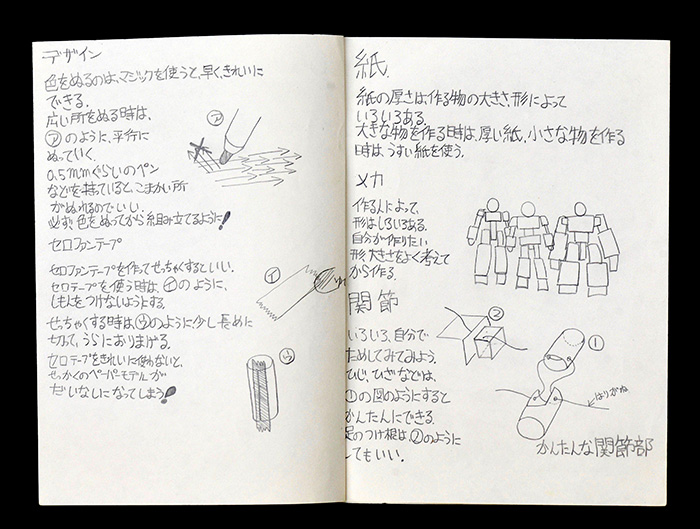 デザイン
色をぬるのは、マジックを使うと、早く、きれいに
できる。
広い所をぬる時は、
㋐のように、平行に
ぬっていく。
0.5mmぐらいのペン
などを持っていると、こまかい所
がぬれるのでいい。
必ず色をぬってから組み立てるように!
セロファンテープ
セロファンテープを作ってせっちゃくするといい。
セロテープを使う時は、㋑のように、
しもんをつけないようする。
せっちゃくする時は㋒のように少し長めに
切って、うらにおりまげる。
セロテープをきれいに使わないと、
せっかくのペーパーモデルが
だいなしになってしまう!
㋐
㋑
㋒
紙
紙の厚さは、作る物の大きさ、形によって
いろいろある。
大きな物を作る時は、厚い紙、小さな物を作る
時は、うすい紙を使う。
メカ
作る人によって、
形はいろいろある。
自分が作りたい
形、大きさをよく考えて
から作る。
関節
いろいろ、自分で
ためしてみてみよう。
ひじ、ひざなどは、
①の図のようにすると
かんたんにできる。
足のつけ根は②のように
してもいい。
②
①
はりがね
かんたんな関節部